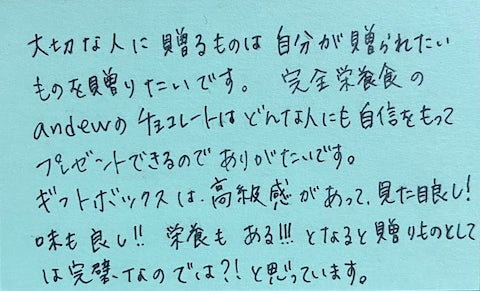 大切な人に贈るものは自分が贈られたい
ものを贈りたいです。 完全栄養食の
andewのチョコレートはどんな人にも自信をもって
プレゼントできるのでありがたいです。
ギフトボックスは、高級感があって、見た目良し!
味も良し!! 栄養もある!!! となると贈りものとして
は完璧なのでは?! と思っています。